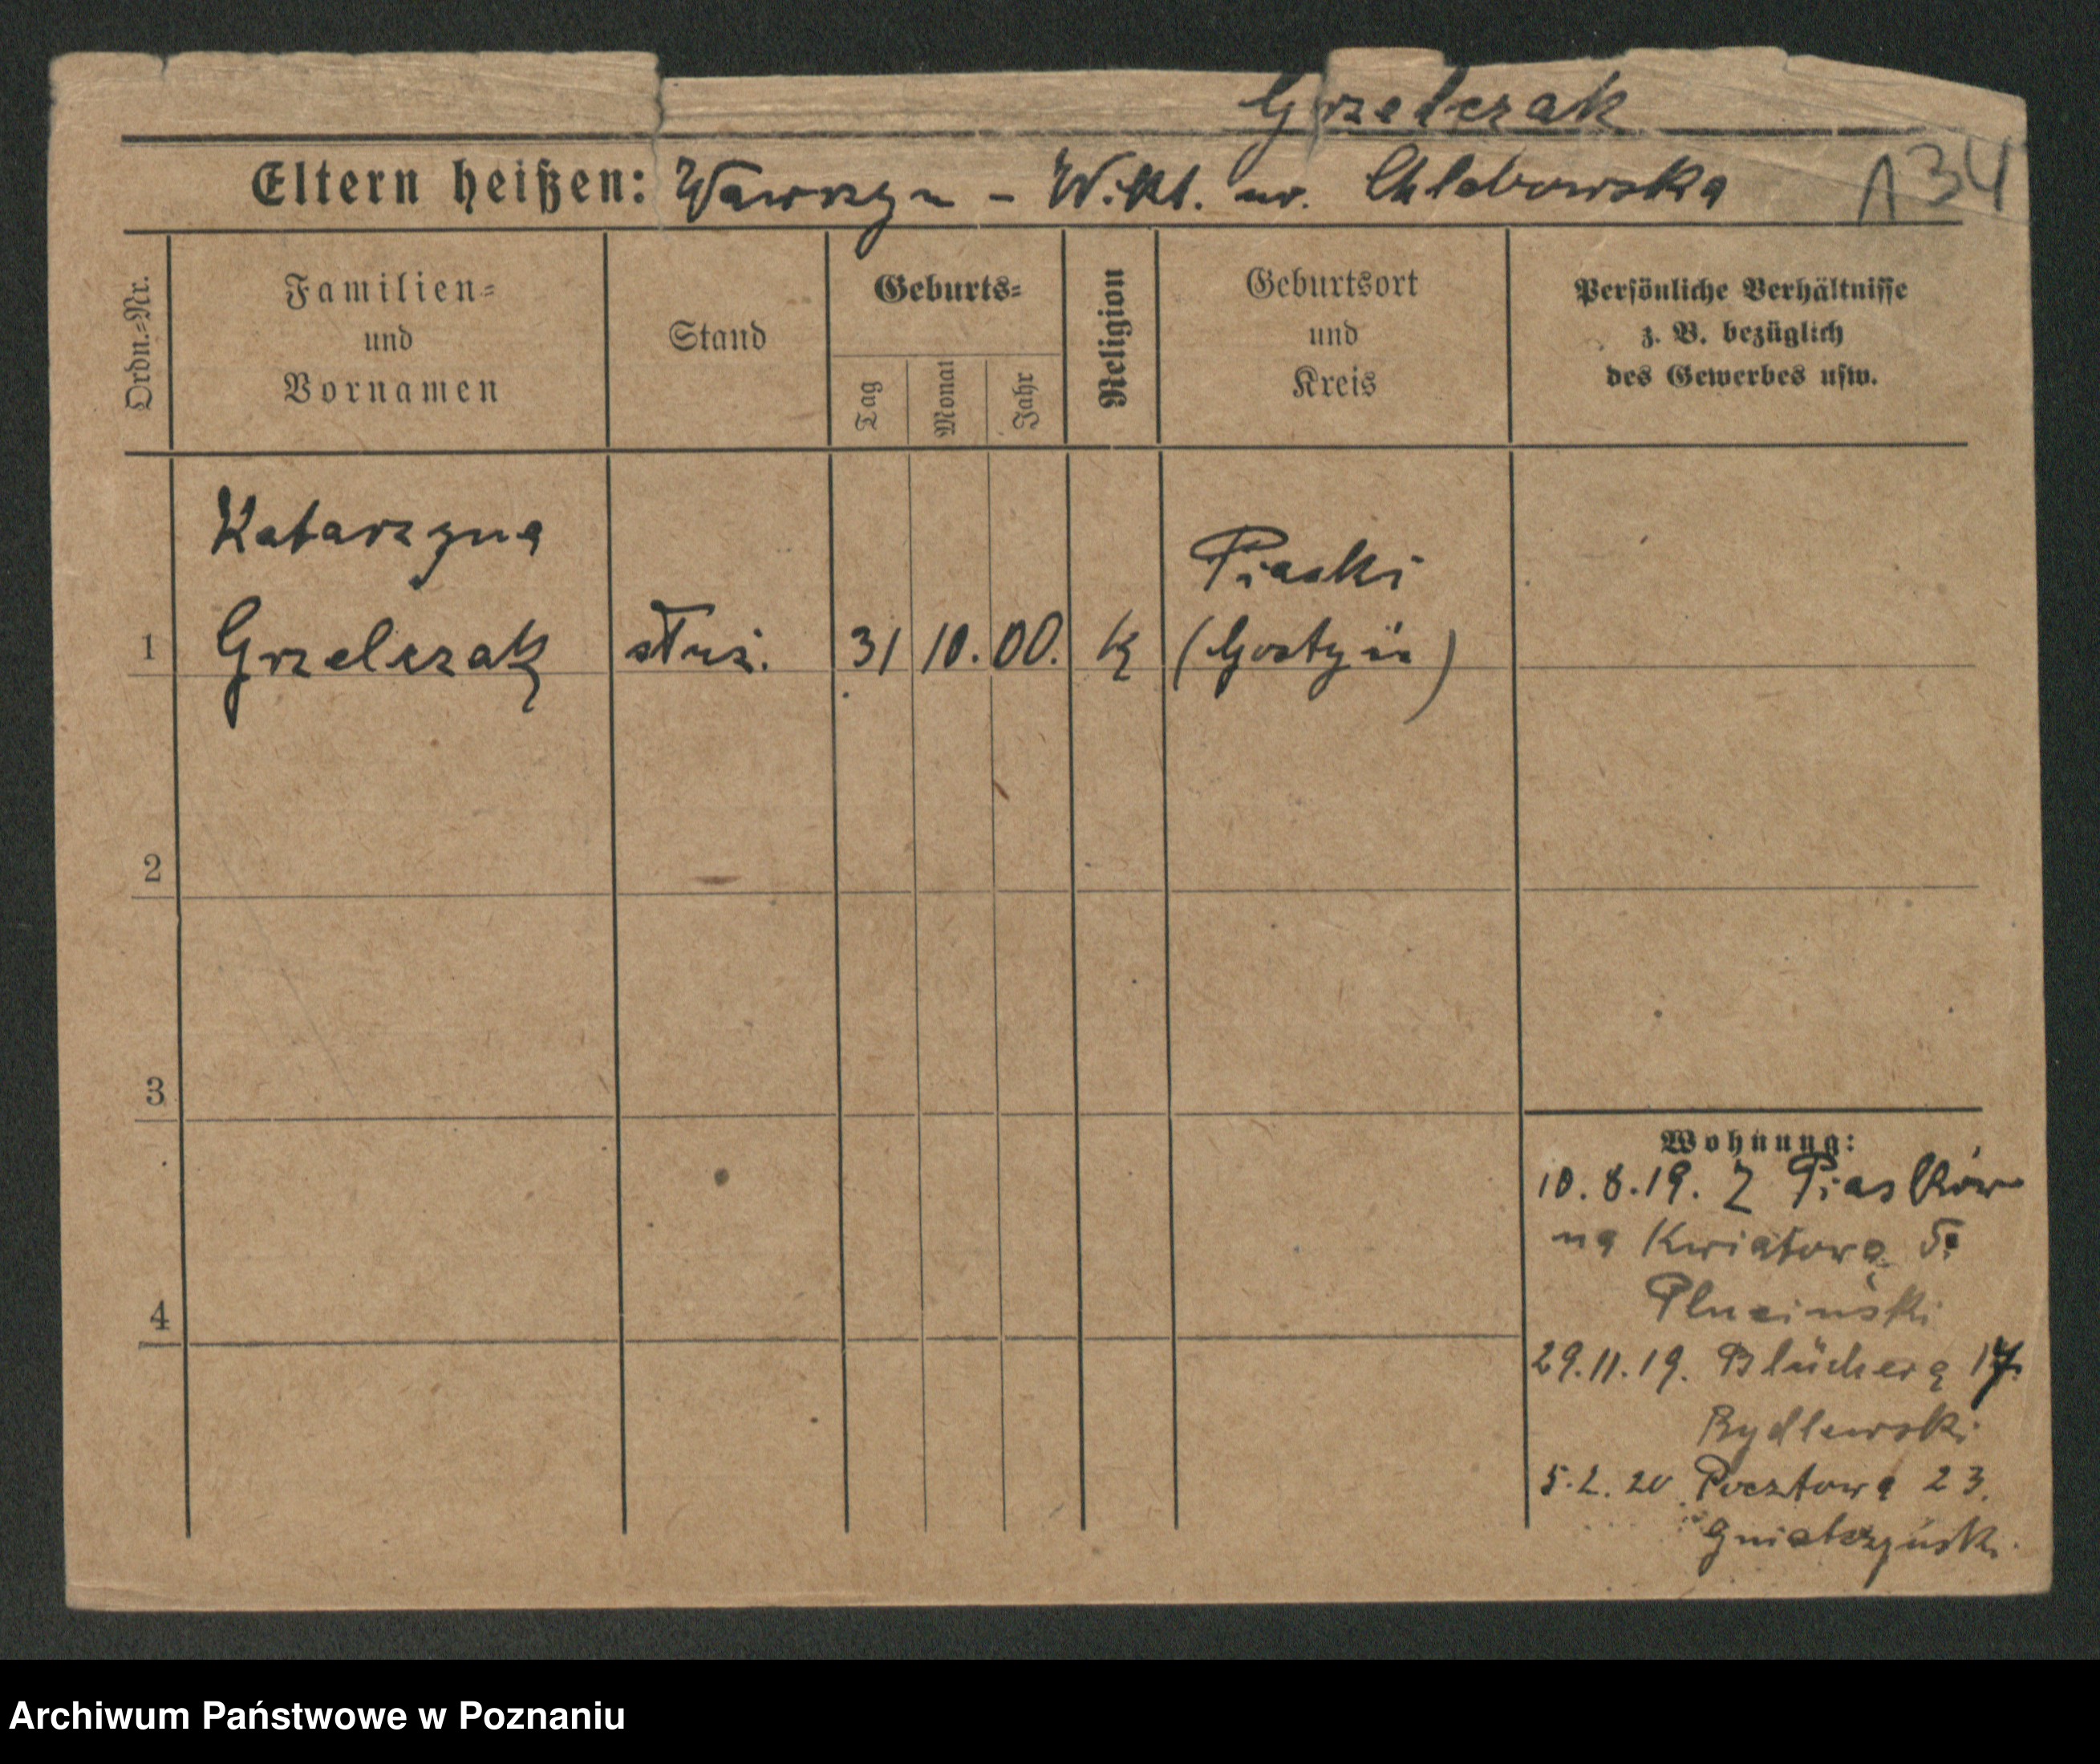 Grzelczak
Eltern heißen: Wawrzyn - Wikt. ur. Chlebowska
134
Ordn.=Nr.
Familien=
und
Vornamen
Stand
Geburts=
Tag
Monat
Jahr
Religion
Geburtsort
und
Kreis
Persönliche Verhältnisse
z. B. bezüglich
des Gewerbes usw.
Katarzyna
Piaski
1 Grzelczak służ. 31 10. 00. K (Gostyń)
2
3
4
Wohnung:
10.8.19. Z Piasków
na Kwiatową 5.
Pluciński
29.11.19. Blüchera 17.
Rydlewski
5.2.20 Pocztowa 23.
Archiwum Państwowe w Poznaniu